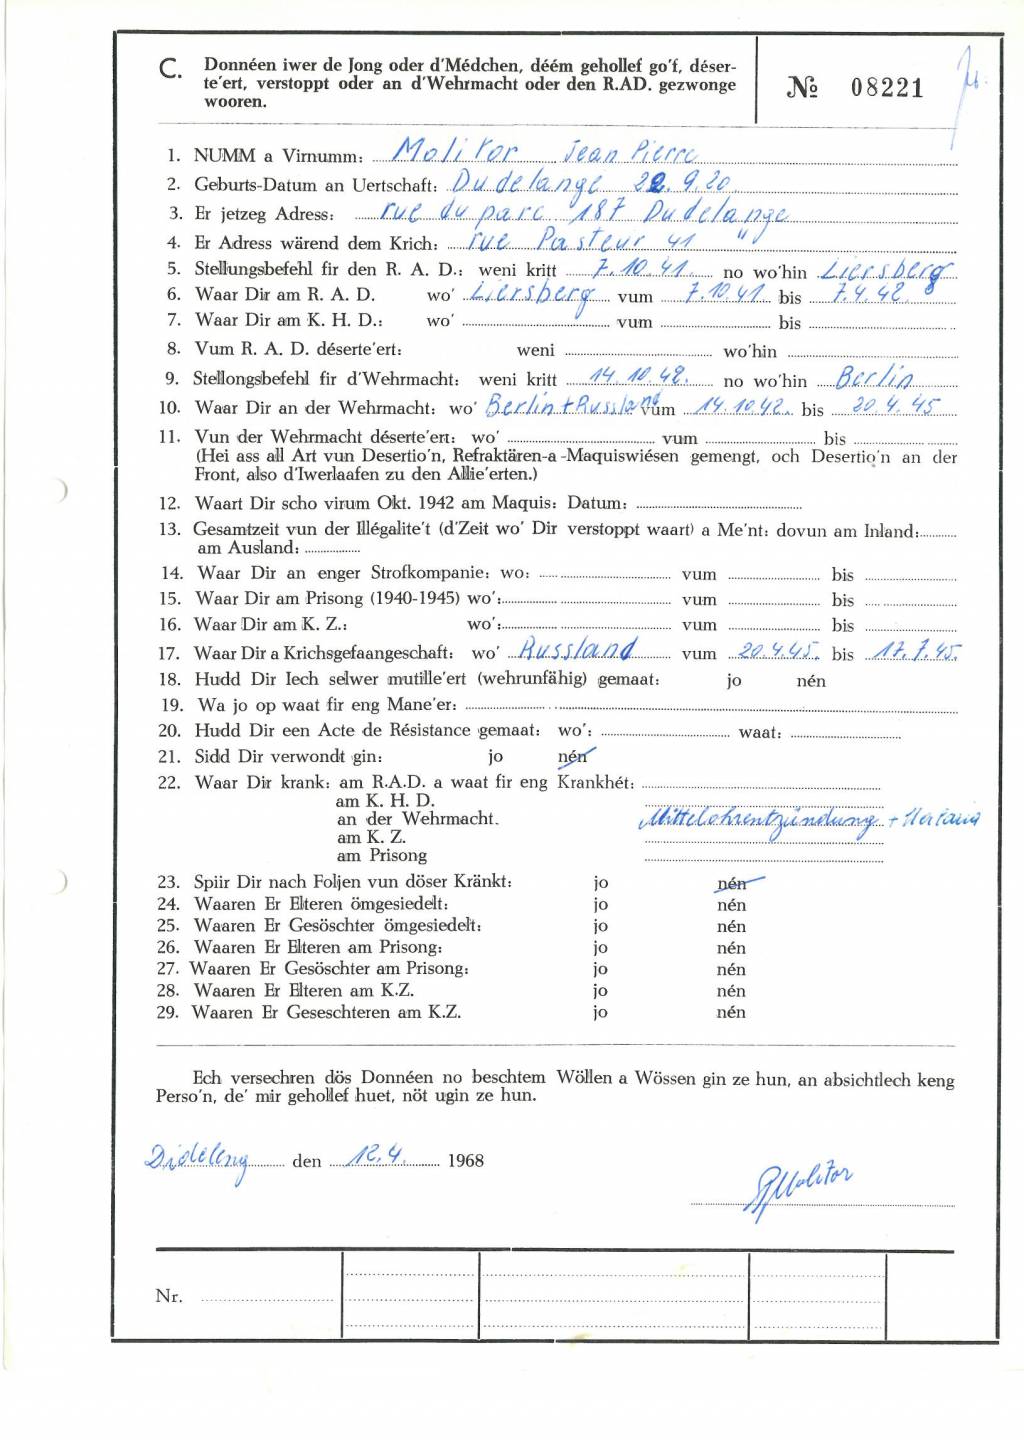 C. Donnéen iwer de Jong oder d'Médchen, déém gehollef go'f, déser-
te'ert, verstoppt oder an d'Wehrmacht oder den R.AD. gezwonge
wooren.
№ 08221
1. NUMM a Virnumm: Molitor Jean Pierre
2. Geburts-Datum an Uertschaft: Dudelange 22.9.20
3. Er jetzeg Adress: rue du parc 187 Dudelange
4. Er Adress wärend dem Krich: rue Pasteur 41 "
5. Stellungsbefehl fir den R. A. D.: weni kritt 7.10.41. no wo'hin Liersberg
6. Waar Dir am R. A. D. wo' Liersberg vum 7.10.41. bis 7.4.42.
7. Waar Dir am K. H. D.: wo' vum bis
8. Vum R. A. D. déserte'ert: weni wo'hin
9. Stellongsbefehl fir d'Wehrmacht: weni kritt 14.10.42. no wo'hin Berlin
10. Waar Dir an der Wehrmacht: wo' Berlin + Russland vum 14.10.42. bis 20.4.45
11. Vun der Wehrmacht déserte'ert: wo' vum bis
(Hei ass all Art vun Desertio'n, Refraktären-a -Maquiswiésen gemengt, och Desertio'n an der
Front, also d'Iwerlaafen zu den Allie'erten.)
12. Waart Dir scho virum Okt. 1942 am Maquis: Datum:
13. Gesamtzeit vun der Illégalite't (d'Zeit wo' Dir verstoppt waart) a Me'nt: dovun am Inland:
am Ausland:
14. Waar Dir an enger Strofkompanie: wo: vum bis
15. Waar Dir am Prisong (1940-1945) wo': vum bis
16. Waar Dir am K. Z.: wo': vum bis
17. Waar Dir a Krichsgefaangeschaft: wo' Russland vum 20.4.45. bis 17.7.45.
18. Hudd Dir Iech selwer mutille'ert (wehrunfähig) gemaat: jo nén
19. Wa jo op waat fir eng Mane'er:
20. Hudd Dir een Acte de Résistance gemaat: wo': waat:
21. Sidd Dir verwondt gin: jo nén
22. Waar Dir krank: am R.A.D. a waat fir eng Krankhét:
am K. H. D.
an der Wehrmacht. Mittelohrentzündung +
am K. Z.
am Prisong
23. Spiir Dir nach Foljen vun döser Kränkt: jo nén
24. Waaren Er Elteren ömgesiedelt: jo nén
25. Waaren Er Gesöschter ömgesiedelt: jo nén
26. Waaren Er Elteren am Prisong: jo nén
27. Waaren Er Gesöschter am Prisong: jo nén
28. Waaren Er Elteren am K.Z. jo nén
29. Waaren Er Geseschteren am K.Z. jo nén
Ech versechren dös Donnéen no beschtem Wöllen a Wössen gin ze hun, an absichtlech keng
Perso'n, de' mir gehollef huet, nöt ugin ze hun.
Dideleng den 12.4. 1968
JPMolitor
Nr.